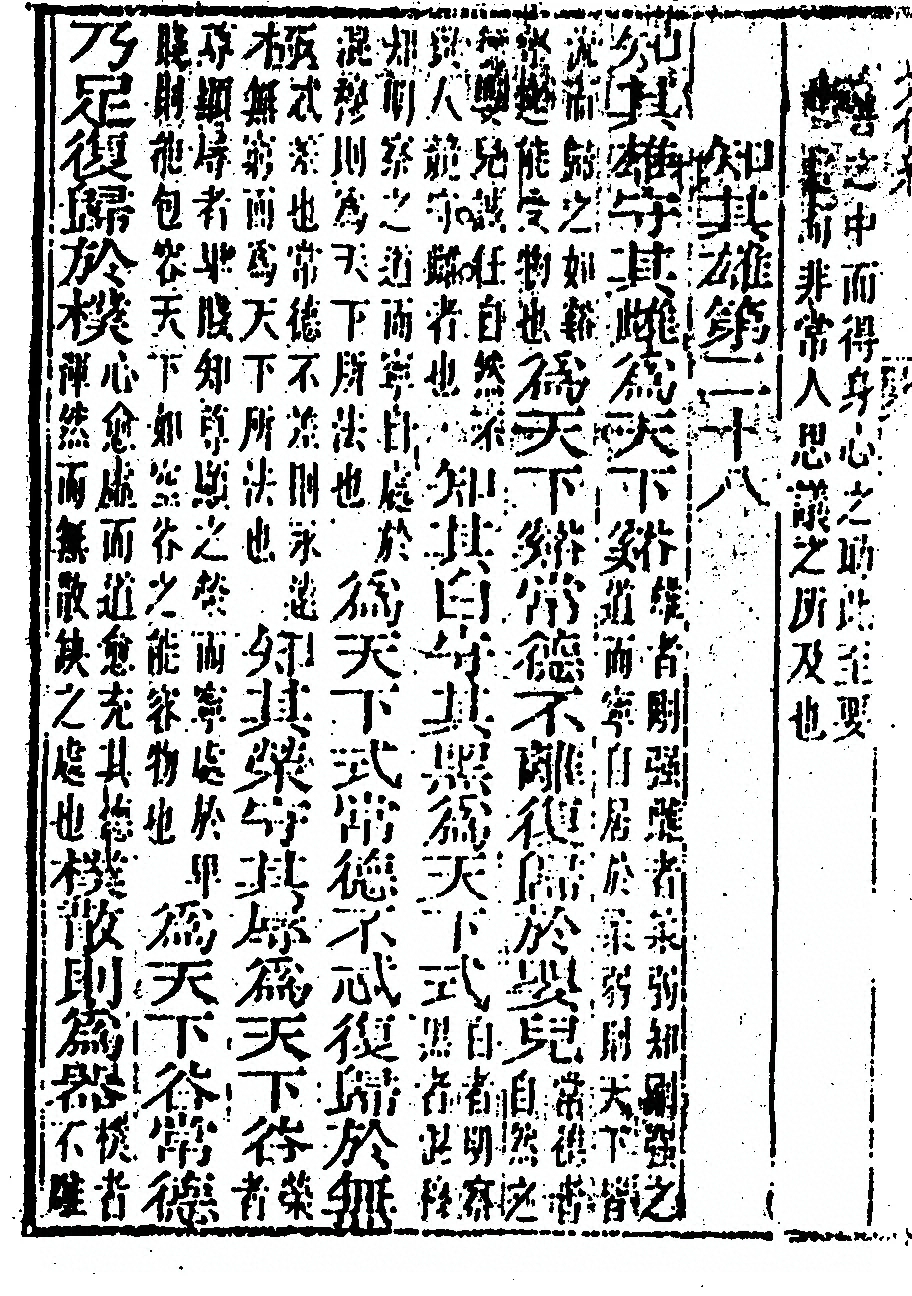 之中而得身心之助此至要
而非常人思議之所及也
知其雄第二十八
知其雄守其雌為天下谿
雄者剛强雌者柔弱知剛强之
道而寧自居於柔弱則天下皆
流而歸之如谿
能受物也
為天下谿常德不離復歸於嬰兒
常德者
自然之
嬰兒誠任自然不
與人競守雌者也
知其白守其黑為天下式
白者明察
黑者
知明察之道而寧自處於
混則為天下所法也
為天下式常德不忒復歸於無
極
忒差也常德不差則永遠
無窮而為天下所法也
知其榮守其辱為天下谷
榮
者
尊顯辱者卑賤知尊顯之榮而寧處於卑
賤則能包容天下如空谷之能容物也
為天下谷常德
乃足復歸於樸
心愈虛而道愈充其德
渾然而無散缺之處也
樸散則為器
樸者
不雕